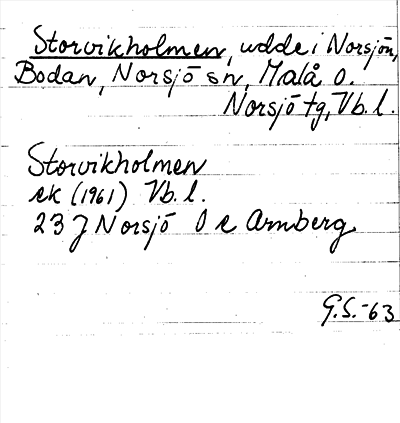 Storvikholmen, udde i Norsjön,
Bodan, Norsjö sn, Malå o.
Norsjö tg, Vb. l.
Storvikholmen
ek (1961) Vb. l.
23 J Norsjö O c Armberg
G.S.-63